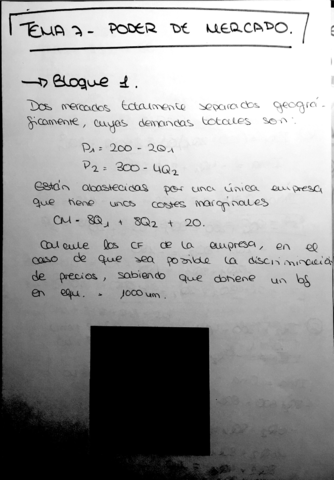 TEMA 7 - PODER DE MERCADO.
→ Bloque 1.
Dos mercados totalmente separados geográ-
ficamente, cuyas demandas totales son:
P1 = 200 - 2Q1
P2 = 300 - 4Q2
Están abastecidas por una única empresa
que tiene unos costes marginales
CM = 8Q1 + 8Q2 + 20.
Calcule los CF de la empresa, en el
caso de que sea posible la discriminación
de precios, sabiendo que obtiene un bf
en equ. = 1000 um.